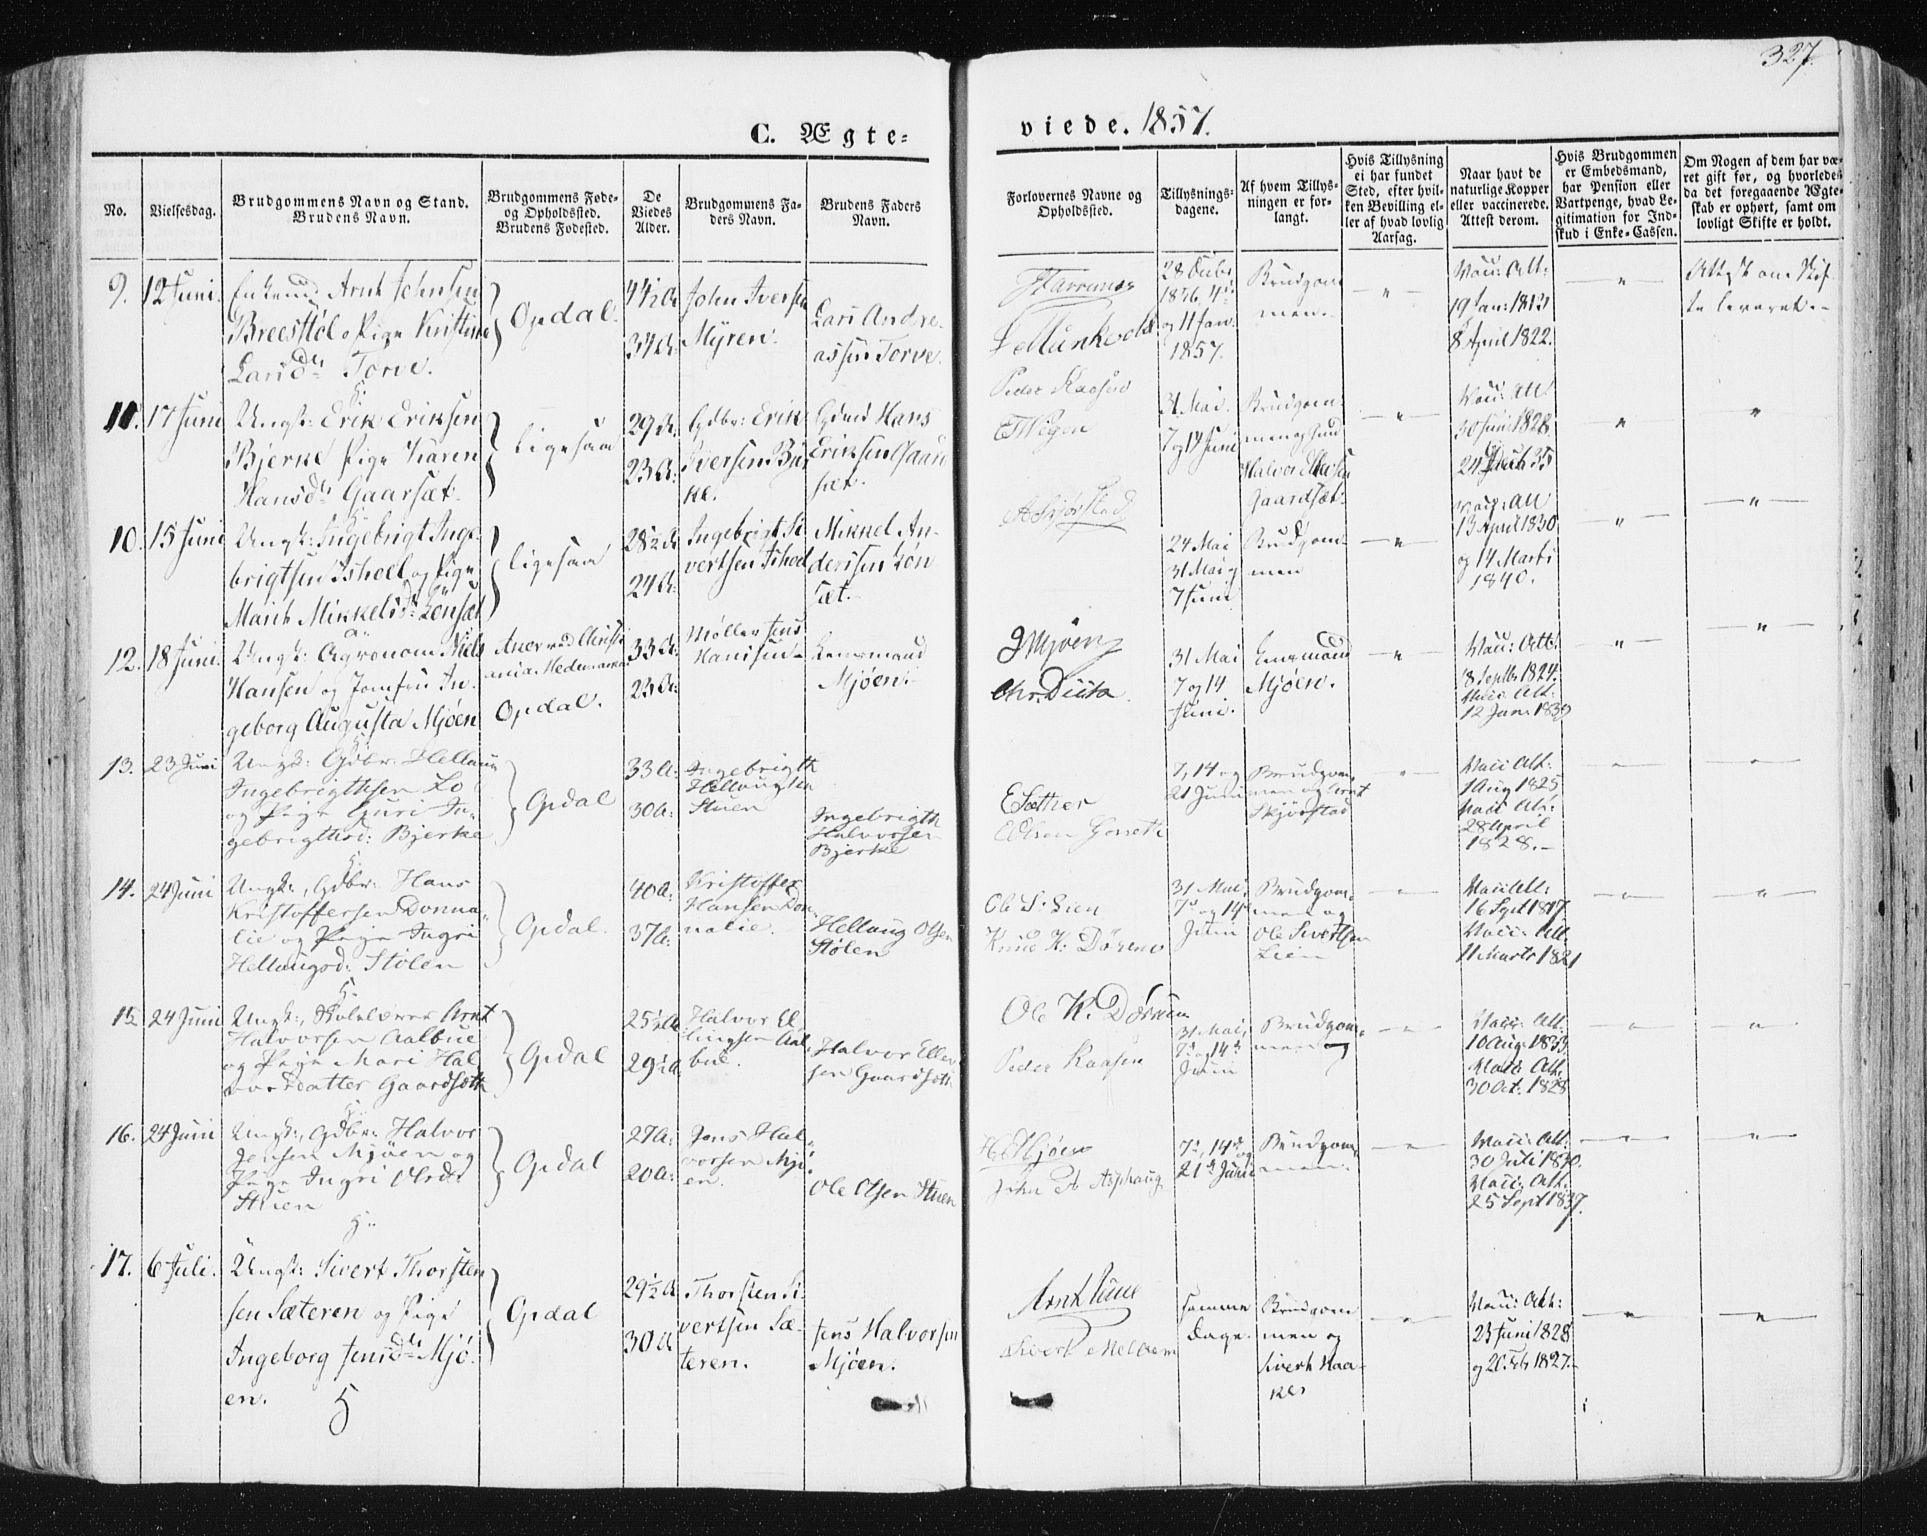 327.
C. Ægte=
viede. 1857.
No.
Vielsesdag.
Brudgommens Navn og Stand.
Brudens Navn.
Brudgommens Føde-
og Opholdssted.
Brudens Fødested.
De
Viedes
Alder.
Brudgommens Fa-
ders Navn.
Brudens Faders
Navn.
Forlovernes Navne og
Opholdssted.
Tillysnings-
dagene.
Af hvem Tillys-
ningen er for-
langt.
Hvis Tillysning
ei har fundet
Sted, efter hvil-
ken Bevilling el-
ler af hvad lovlig
Aarsag.
Naar havt de
naturlige Kopper
eller vaccinerede.
Attest derom.
Hvis Brudgommen
er Embedsmand,
har Pension eller
Vartpenge, hvad Le-
gitimation for Ind-
skud i Enke-Cassen.
Om Nogen af dem har væ-
ret gift før, og hvorledes
da det foregaaende Ægte-
skab er ophørt, samt om
lovligt Skifte er holdt.
9.
12 Juni.
Enkemd Arnt Johnsen
Breesstöl o Pige Kristine
Larsdr Torve.
Opdal.
44½ A
34 A:
John Iversen
Myren.
Lars Andre-
assen Torve.
1856, 4de
og 11 Jan.
1857.
Brudgom
men.
Vacc: Att:
19 Jan: 1813
8 April 1822.
Attest om Skif
te leveret.-
11.
17 Juni
Ungk: Erik Eriksen
Bjerke Pige Karen
Hansdr Gaarsæt.
ligesaa
29 A.
23 A:
Gdbr: Erik
Iversen Bjer
ke.
Gdmd Hans
Eriksen Gaard
sæt.
Peder Kaasen
31 Mai.
7 og 14 Juni
Brudgom.
Gaardsæt.
Vacc: Att:
30 Juni 1828
10.
15 Juni
Ungk: Ingebrigt Inge-
brigtsen Ishoel og Pige
Marit Mikkelsdr Lönsæt
ligesaa
28½ A
24 A:
Ingebrigt Si
vertsen Ishoel
Mikkel An-
derssen Lön
sæt.
24 Mai
31 Mai og
7 Juni
Brudgom-
men
Vacc: Att
13 April 1830
og 14 Marts
1840.
12.
18 Juni.
Ungk: Agronom Niels
Hansen og Jomfru In-
geborg Augusta Mjöen
Opdal.
33 A:
23 A:
Møller Jens
Hansen
Lensmand
Mjöen.
31 Mai
7 og 14
Juni.
Lensmand
Mjöen.
Vacc: Att:
8 Septb 1824.
Vacc: Att:
12 Jan: 1839
13.
23 Juni
Ungk: Gdbr: Hellaug
Ingebrigthsen Lo
og Pige Guri In-
gebrigthsd: Bjerke
Opdal
33 A:
30 A:
Ingebrigth
Hellaugsen
Stuen
Ingebrigth
Halvorsen
Bjerke
E Sæther
7, 14 og
21 Juni
Brudgom-
men og
Skjörstad
Vacc Att:
1 Aug 1825
Vacc Att:
28 April
1828.-
14.
24 Juni
Ungk:, Gdbr: Hans
Kristoffersen Donna-
lie og Pige Ingri
Hellaugsd: Stölen
Opdal.
40 A:
37 A:
Kristoffer
Hansen Don-
nalie.
Hellaug Olsen
Stölen
Ole S: Lien
Knud K: Dörum
31 Mai,
7de og 14de
Juni
Brudgom-
men og
Ole Sivertsen
Lien
Vacc Att:
16 Sept 1817
Vacc: Att.
11 Marts 1821
15
24 Juni
Ungk:, Skolelærer Arnt
Halvorsen Aalbue
og Pige Mari Hal
vorsdatter Gaardsæth
Opdal
25½ A
29½ A.
Halvor El
lingsen Aal-
bue.
Halvor Ellev
sen Gaardsæth
Ole K. Dörum
Peder Kaasen
31 Mai,
7de og 14de
Juni
Brudgom-
men og
Vacc: Att.
10 Aug: 1833
Vacc: Att:
30 Oct: 1828
16.
24 Juni
Ungk:, Gdbr: Halvor
Jensen Mjöen og
Pige Ingri Olsd:
Stuen
Opdal
27 A:
20 A:
Jens Hal-
vorsen Mjö-
en.
Ole Olsen Stuen
7de, 14de og
21de Juni
Brudgom-
men.
Vacc: Att:
30 Juli 1830.
Vacc: Att:
25 Sept 1837.
17.
6 Juli.
Ungk: Sivert Thorsten
sen Sæteren og Pige
Ingeborg Jensdr Mjö-
en.
Opdal
29½ A
30 A
Thorsten Si-
vertsen Sæ-
teren.
Jens Halvorsen
Mjöen.
Sivert Mellem
Samme
Dage.
Brudgom
men og
Sivert Haa-
ker
Vacc: Att:
23 Juni 1828
og 20 Feb 1827.-